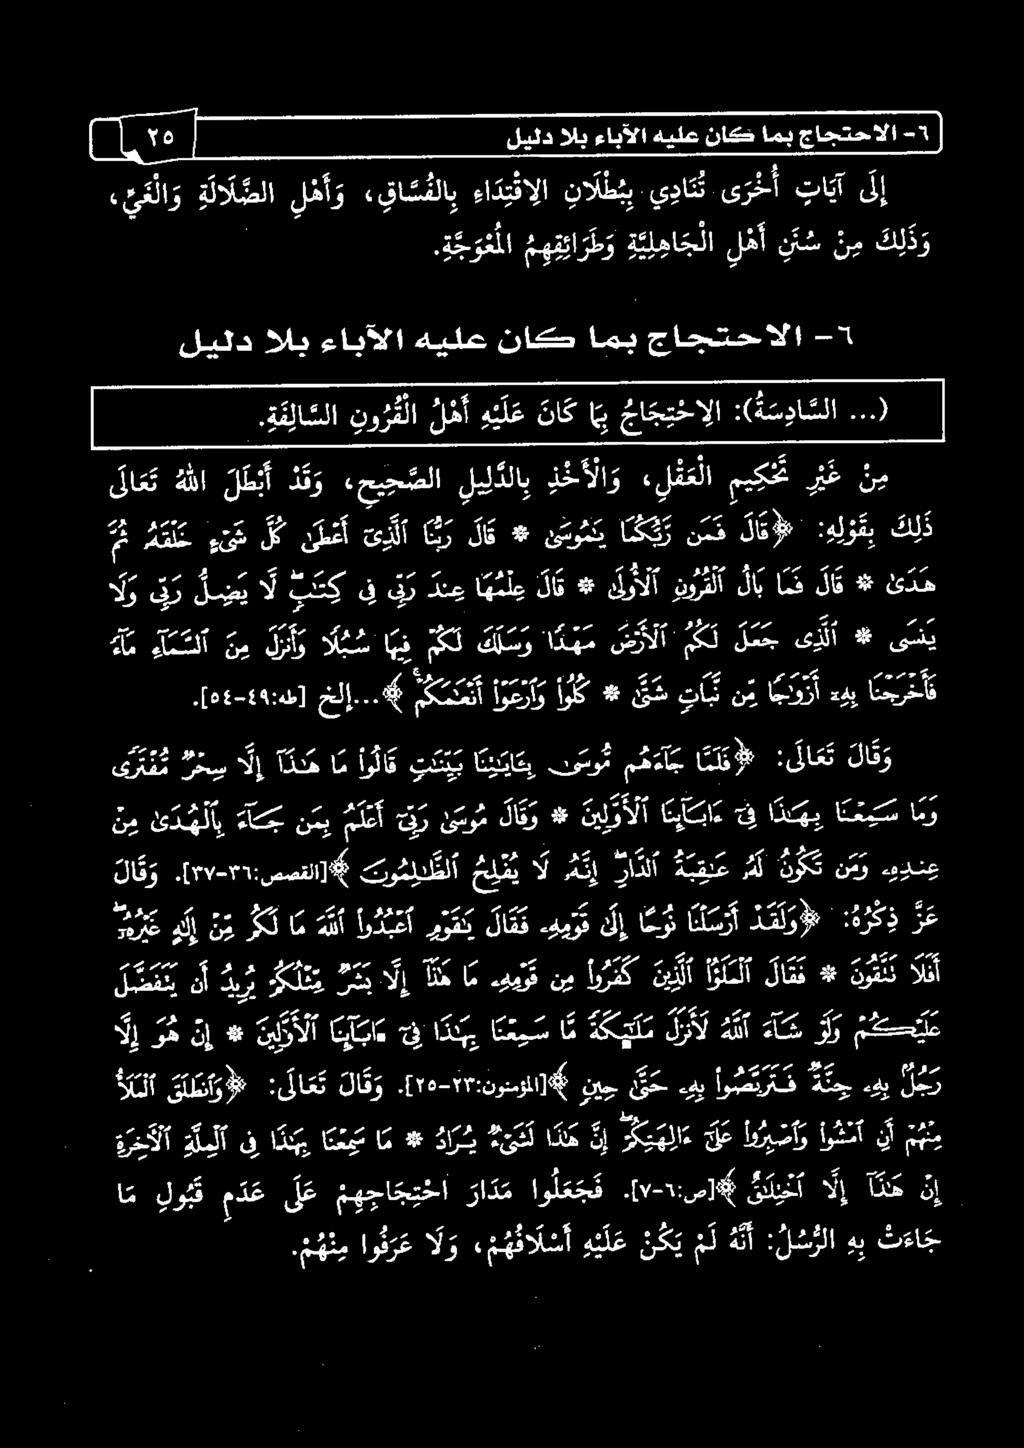 ٦- الاحتجاج بما كان عليه الآباء بلا دليل
٢٥
إِلَى آيَاتٍ أُخْرَى تُنَادِي بِبُطْلَانِ الِاقْتِدَاءِ بِالْفُسَّاقِ، وَأَهْلِ الضَّلَالَةِ وَالْغَيِّ،
وَذَلِكَ مِنْ سُنَنِ أَهْلِ الْجَاهِلِيَّةِ وَطَرَائِقِهِمُ الْمُعْوَجَّةِ.
٦- الاحتجاج بما كان عليه الآباء بلا دليل
(... السَّادِسَةُ): الِاحْتِجَاجُ بِمَا كَانَ عَلَيْهِ أَهْلُ الْقُرُونِ السَّالِفَةِ.
مِنْ غَيْرِ تَحْكِيمِ الْعَقْلِ، وَالْأَخْذِ بِالدَّلِيلِ الصَّحِيحِ، وَقَدْ أَبْطَلَ اللهُ تَعَالَى
ذَلِكَ بِقَوْلِهِ: ﴿قَالَ فَمَن رَّبُّكُمَا يَٰمُوسَىٰ * قَالَ رَبُّنَا ٱلَّذِىٓ أَعْطَىٰ كُلَّ شَىْءٍ خَلْقَهُۥ ثُمَّ
هَدَىٰ * قَالَ فَمَا بَالُ ٱلْقُرُونِ ٱلْأُولَىٰ * قَالَ عِلْمُهَا عِندَ رَبِّى فِى كِتَٰبٍ ۖ لَّا يَضِلُّ رَبِّى وَلَا
يَنسَى * ٱلَّذِى جَعَلَ لَكُمُ ٱلْأَرْضَ مَهْدًا وَسَلَكَ لَكُمْ فِيهَا سُبُلًا وَأَنزَلَ مِنَ ٱلسَّمَآءِ مَآءً
فَأَخْرَجْنَا بِهِۦٓ أَزْوَٰجًا مِّن نَّبَاتٍ شَتَّىٰ * كُلُوا۟ وَٱرْعَوْا۟ أَنْعَٰمَكُمْ ۗ﴾...إلخ [طه:٤٩-٥٤].
وَقَالَ تَعَالَى: ﴿فَلَمَّا جَآءَهُم مُّوسَىٰ بِـَٔايَٰتِنَا بَيِّنَٰتٍ قَالُوا۟ مَا هَٰذَآ إِلَّا سِحْرٌ مُّفْتَرًى
وَمَا سَمِعْنَا بِهَٰذَا فِىٓ ءَابَآئِنَا ٱلْأَوَّلِينَ * وَقَالَ مُوسَىٰ رَبِّىٓ أَعْلَمُ بِمَن جَآءَ بِٱلْهُدَىٰ مِنْ
عِندِهِۦ وَمَن تَكُونُ لَهُۥ عَٰقِبَةُ ٱلدَّارِ ۖ إِنَّهُۥ لَا يُفْلِحُ ٱلظَّٰلِمُونَ﴾[القصص:٣٦-٣٧]. وَقَالَ
عَزَّ ذِكْرُهُ: ﴿وَلَقَدْ أَرْسَلْنَا نُوحًا إِلَىٰ قَوْمِهِۦ فَقَالَ يَٰقَوْمِ ٱعْبُدُوا۟ ٱللَّهَ مَا لَكُم مِّنْ إِلَٰهٍ غَيْرُهُۥٓ ۖ
أَفَلَا تَتَّقُونَ * فَقَالَ ٱلْمَلَؤُا۟ ٱلَّذِينَ كَفَرُوا۟ مِن قَوْمِهِۦ مَا هَٰذَآ إِلَّا بَشَرٌ مِّثْلُكُمْ يُرِيدُ أَن يَتَفَضَّلَ
عَلَيْكُمْ وَلَوْ شَآءَ ٱللَّهُ لَأَنزَلَ مَلَٰٓئِكَةً مَّا سَمِعْنَا بِهَٰذَا فِىٓ ءَابَآئِنَا ٱلْأَوَّلِينَ * إِنْ هُوَ إِلَّا
رَجُلٌۢ بِهِۦ جِنَّةٌ فَتَرَبَّصُوا۟ بِهِۦ حَتَّىٰ حِينٍ﴾[المؤمنون:٢٣-٢٥]. وَقَالَ تَعَالَى: ﴿وَٱنطَلَقَ ٱلْمَلَأُ
مِنْهُمْ أَنِ ٱمْشُوا۟ وَٱصْبِرُوا۟ عَلَىٰٓ ءَالِهَتِكُمْ ۖ إِنَّ هَٰذَا لَشَىْءٌ يُرَادُ * مَا سَمِعْنَا بِهَٰذَا فِى ٱلْمِلَّةِ ٱلْـَٔاخِرَةِ
إِنْ هَٰذَآ إِلَّا ٱخْتِلَٰقٌ﴾[ص:٦-٧]. فَجَعَلُوا مَدَارَ احْتِجَاجِهِمْ عَلَى عَدَمِ قَبُولِ مَا
جَاءَتْ بِهِ الرُّسُلُ: أَنَّهُ لَمْ يَكُنْ عَلَيْهِ أَسْلَافُهُمْ، وَلَا عَرَفُوا مِنْهُمْ.